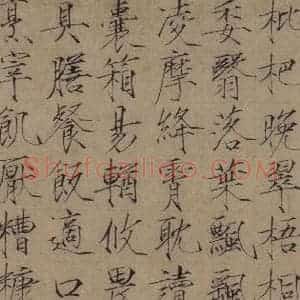 枇杷晚翠梧桐
委翳落葉飄颻
凌摩絳霄耽讀
囊箱易輶攸畏
具膳餐飯適口
烹宰飢厭糟糠